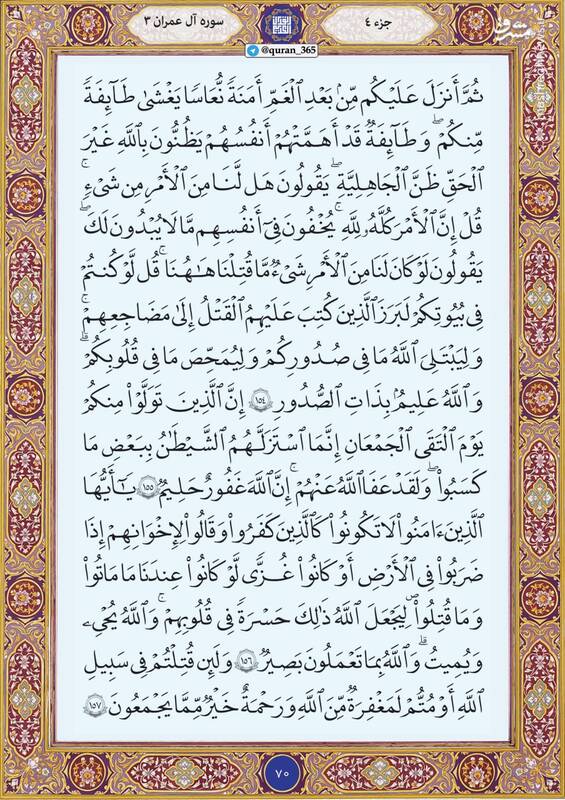 جزء ٤
سوره آل عمران ٣
@quran_365
ثُمَّ أَنزَلَ عَلَيْكُم مِّنۢ بَعْدِ ٱلْغَمِّ أَمَنَةً نُّعَاسًا يَغْشَىٰ طَآئِفَةً
مِّنكُمْ ۖ وَطَآئِفَةٌ قَدْ أَهَمَّتْهُمْ أَنفُسُهُمْ يَظُنُّونَ بِٱللَّهِ غَيْرَ
ٱلْحَقِّ ظَنَّ ٱلْجَاهِلِيَّةِ ۖ يَقُولُونَ هَل لَّنَا مِنَ ٱلْأَمْرِ مِن شَىْءٍ ۗ
قُلْ إِنَّ ٱلْأَمْرَ كُلَّهُۥ لِلَّهِ ۗ يُخْفُونَ فِىٓ أَنفُسِهِم مَّا لَا يُبْدُونَ لَكَ ۖ
يَقُولُونَ لَوْ كَانَ لَنَا مِنَ ٱلْأَمْرِ شَىْءٌ مَّا قُتِلْنَا هَـٰهُنَا ۗ قُل لَّوْ كُنتُمْ
فِى بُيُوتِكُمْ لَبَرَزَ ٱلَّذِينَ كُتِبَ عَلَيْهِمُ ٱلْقَتْلُ إِلَىٰ مَضَاجِعِهِمْ ۖ
وَلِيَبْتَلِىَ ٱللَّهُ مَا فِى صُدُورِكُمْ وَلِيُمَحِّصَ مَا فِى قُلُوبِكُمْ ۗ
وَٱللَّهُ عَلِيمٌۢ بِذَاتِ ٱلصُّدُورِ ١٥٤ إِنَّ ٱلَّذِينَ تَوَلَّوْا۟ مِنكُمْ
يَوْمَ ٱلْتَقَى ٱلْجَمْعَانِ إِنَّمَا ٱسْتَزَلَّهُمُ ٱلشَّيْطَـٰنُ بِبَعْضِ مَا
كَسَبُوا۟ ۖ وَلَقَدْ عَفَا ٱللَّهُ عَنْهُمْ ۗ إِنَّ ٱللَّهَ غَفُورٌ حَلِيمٌ ١٥٥ يَـٰٓأَيُّهَا
ٱلَّذِينَ ءَامَنُوا۟ لَا تَكُونُوا۟ كَٱلَّذِينَ كَفَرُوا۟ وَقَالُوا۟ لِإِخْوَٰنِهِمْ إِذَا
ضَرَبُوا۟ فِى ٱلْأَرْضِ أَوْ كَانُوا۟ غُزًّى لَّوْ كَانُوا۟ عِندَنَا مَا مَاتُوا۟
وَمَا قُتِلُوا۟ لِيَجْعَلَ ٱللَّهُ ذَٰلِكَ حَسْرَةً فِى قُلُوبِهِمْ ۗ وَٱللَّهُ يُحْىِۦ
وَيُمِيتُ ۗ وَٱللَّهُ بِمَا تَعْمَلُونَ بَصِيرٌ ١٥٦ وَلَئِن قُتِلْتُمْ فِى سَبِيلِ
ٱللَّهِ أَوْ مُتُّمْ لَمَغْفِرَةٌ مِّنَ ٱللَّهِ وَرَحْمَةٌ خَيْرٌ مِّمَّا يَجْمَعُونَ ١٥٧
٧٠